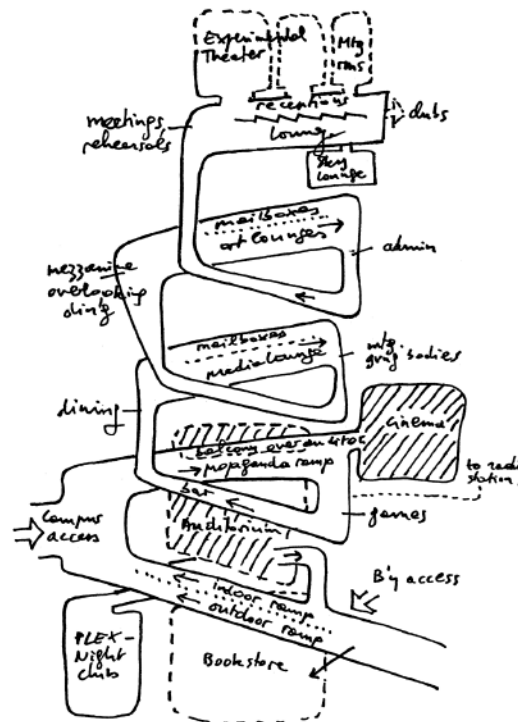 Experimental
Theater
Mtg
rms
receptions
lounge
clubs
meetings,
rehearsals
Sky
lounge
mailboxes
art lounges
admin
mezzanine
overlooking
din'g
mailboxes
media lounge
mtg
gvng bodies
dining
cinema
balcony over auditor.
propaganda ramp
to radio
station
bar
games
Campus
access
Auditorium
B'y access
indoor ramp
outdoor ramp
PLEX-
Night
club
Bookstore